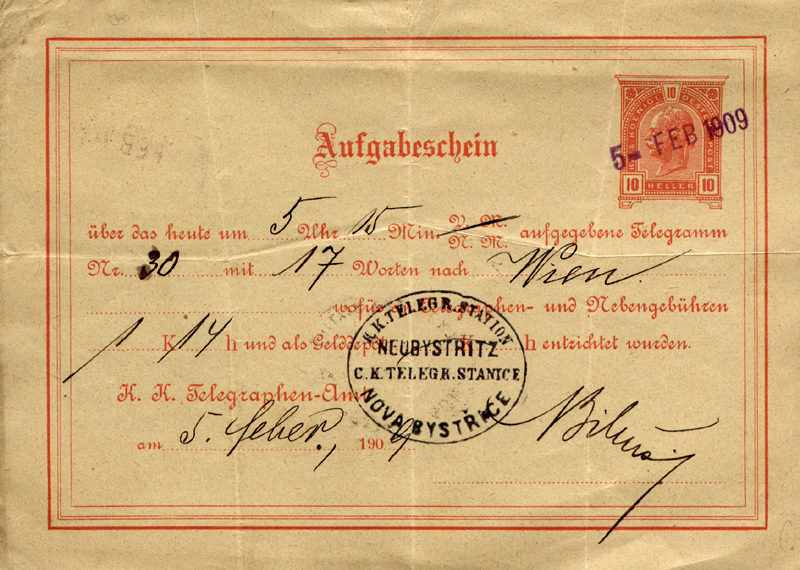 10
KAIS. KOENIGL. OESTERR. POST
10 HELLER 10
5- FEB 1909
Aufgabeschein
über das heute um 5 Uhr 15 Min. V. M. N. M. aufgegebene Telegramm
Nr. 30 mit 17 Worten nach Wien
wofür an Telegraphen- und Nebengebühren
1 K 14 h und als Gelddepot K h entrichtet wurden.
K. K. TELEGR. STATION
NEUBYSTRITZ
C. K. TELEGR. STANICE
NOVA BYSTŘICE
K. K. Telegraphen-Amt
am 5. feber, 1909